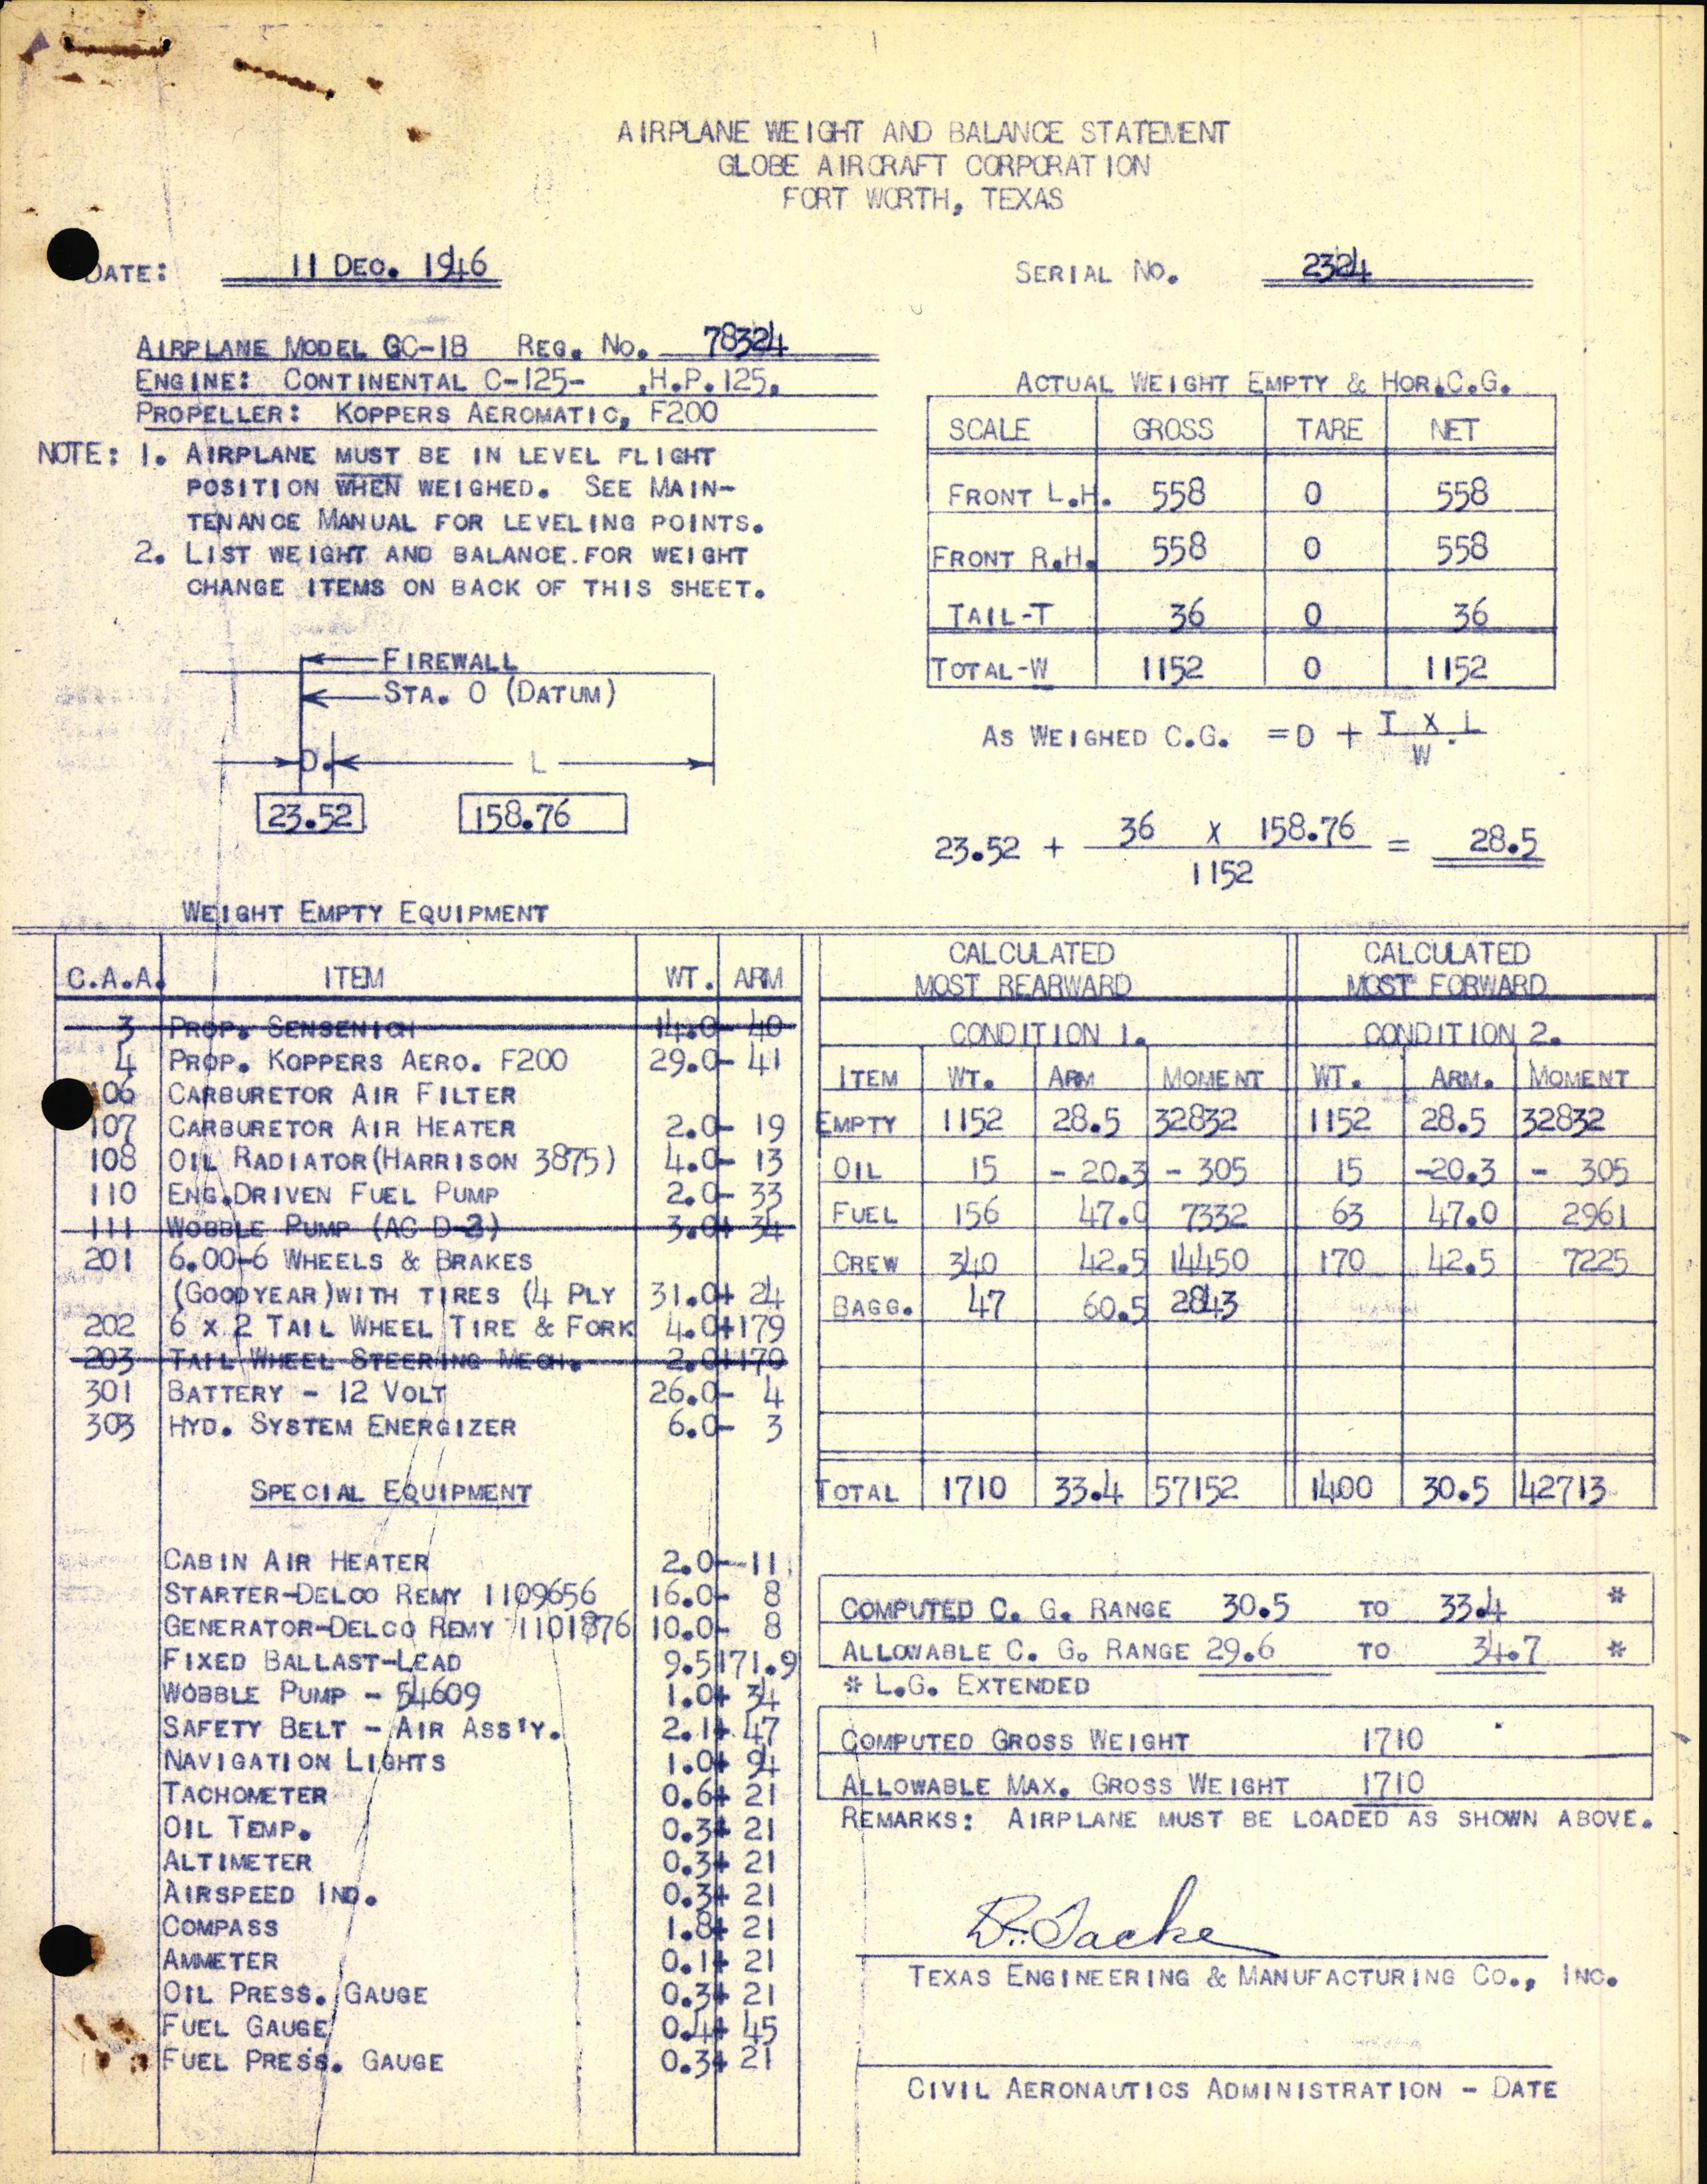 AIRPLANE WEIGHT AND BALANCE STATEMENT
GLOBE AIRCRAFT CORPORATION
FORT WORTH, TEXAS
DATE: 11 DEC. 1946
SERIAL NO. 2324
AIRPLANE MODEL GC-1B REG. NO. 78324
ENGINE: CONTINENTAL C-125- ,H.P.125,
PROPELLER: KOPPERS AEROMATIC, F200
NOTE: 1. AIRPLANE MUST BE IN LEVEL FLIGHT
POSITION WHEN WEIGHED. SEE MAIN-
TENANCE MANUAL FOR LEVELING POINTS.
2. LIST WEIGHT AND BALANCE FOR WEIGHT
CHANGE ITEMS ON BACK OF THIS SHEET.
ACTUAL WEIGHT EMPTY & HOR.C.G.
SCALE GROSS TARE NET
FRONT L.H. 558 0 558
FRONT R.H. 558 0 558
TAIL-T 36 0 36
TOTAL-W 1152 0 1152
FIREWALL
STA. 0 (DATUM)
D. L
23.52 158.76
AS WEIGHED C.G. = D + T X L
W.
23.52 + 36 X 158.76 = 28.5
1152
WEIGHT EMPTY EQUIPMENT
C.A.A. ITEM WT. ARM
3 PROP. SENSENICH 14.0- 40
4 PROP. KOPPERS AERO. F200 29.0- 41
106 CARBURETOR AIR FILTER
107 CARBURETOR AIR HEATER 2.0- 19
108 OIL RADIATOR(HARRISON 3875) 4.0- 13
110 ENG.DRIVEN FUEL PUMP 2.0- 33
111 WOBBLE PUMP (AC D-2) 3.0+ 34
201 6.00-6 WHEELS & BRAKES
(GOODYEAR)WITH TIRES (4 PLY 31.0+ 24
202 6 X 2 TAIL WHEEL TIRE & FORK 4.0+179
203 TAIL WHEEL STEERING MECH. 2.0+170
301 BATTERY - 12 VOLT 26.0- 4
303 HYD. SYSTEM ENERGIZER 6.0- 3
SPECIAL EQUIPMENT
CABIN AIR HEATER 2.0--11
STARTER-DELCO REMY 1109656 16.0- 8
GENERATOR-DELCO REMY 1101876 10.0- 8
FIXED BALLAST-LEAD 9.5 171.9
WOBBLE PUMP - 54609 1.0+ 34
SAFETY BELT - AIR ASS'Y. 2.1+ 47
NAVIGATION LIGHTS 1.0+ 94
TACHOMETER 0.6+ 21
OIL TEMP. 0.3+ 21
ALTIMETER 0.3+ 21
AIRSPEED IND. 0.3+ 21
COMPASS 1.8+ 21
AMMETER 0.1+ 21
OIL PRESS. GAUGE 0.3+ 21
FUEL GAUGE 0.4+ 45
FUEL PRESS. GAUGE 0.3+ 21
CALCULATED CALCULATED
MOST REARWARD MOST FORWARD
CONDITION 1. CONDITION 2.
ITEM WT. ARM MOMENT WT. ARM. MOMENT
EMPTY 1152 28.5 32832 1152 28.5 32832
OIL 15 - 20.3 - 305 15 -20.3 - 305
FUEL 156 47.0 7332 63 47.0 2961
CREW 340 42.5 14450 170 42.5 7225
BAGG. 47 60.5 2843
TOTAL 1710 33.4 57152 1400 30.5 42713
COMPUTED C. G. RANGE 30.5 TO 33.4 *
ALLOWABLE C. G. RANGE 29.6 TO 34.7 *
* L.G. EXTENDED
COMPUTED GROSS WEIGHT 1710
ALLOWABLE MAX. GROSS WEIGHT 1710
REMARKS: AIRPLANE MUST BE LOADED AS SHOWN ABOVE.
D. Tacke
TEXAS ENGINEERING & MANUFACTURING CO., INC.
CIVIL AERONAUTICS ADMINISTRATION - DATE